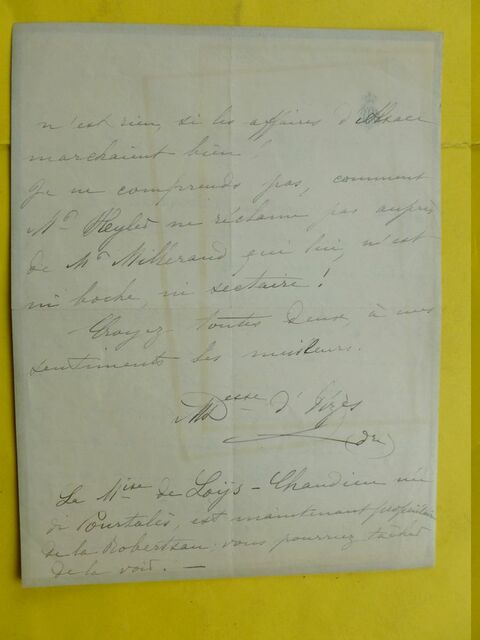 n'est rien, si les affaires d'Alsace
marchaient bien !
Je ne comprends pas, comment
Mr Heyler ne réclame pas auprès
de Mr Millerand qui lui, n'est
ni boche, ni sectaire !
Croyez toutes deux, à mes
sentiments les meilleurs.
Desse d'Uzès
(de)
La Mise de Loÿs-Chandieu née
de Pourtalès, est maintenant propriétaire
de la Robertsau vous pourriez tâcher
de la voir. —